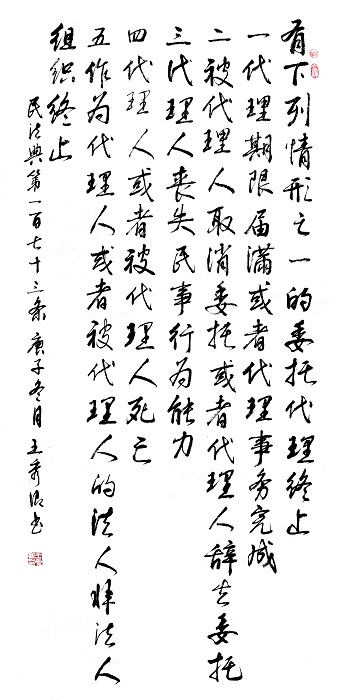 有下列情形之一的委托代理终止
一代理期限届满或者代理事务完成
二被代理人取消委托或者代理人辞去委托
三代理人丧失民事行为能力
四代理人或者被代理人死亡
五作为代理人或者被代理人的法人非法人
组织终止
民法典第一百七十三条 庚子冬月 王 书